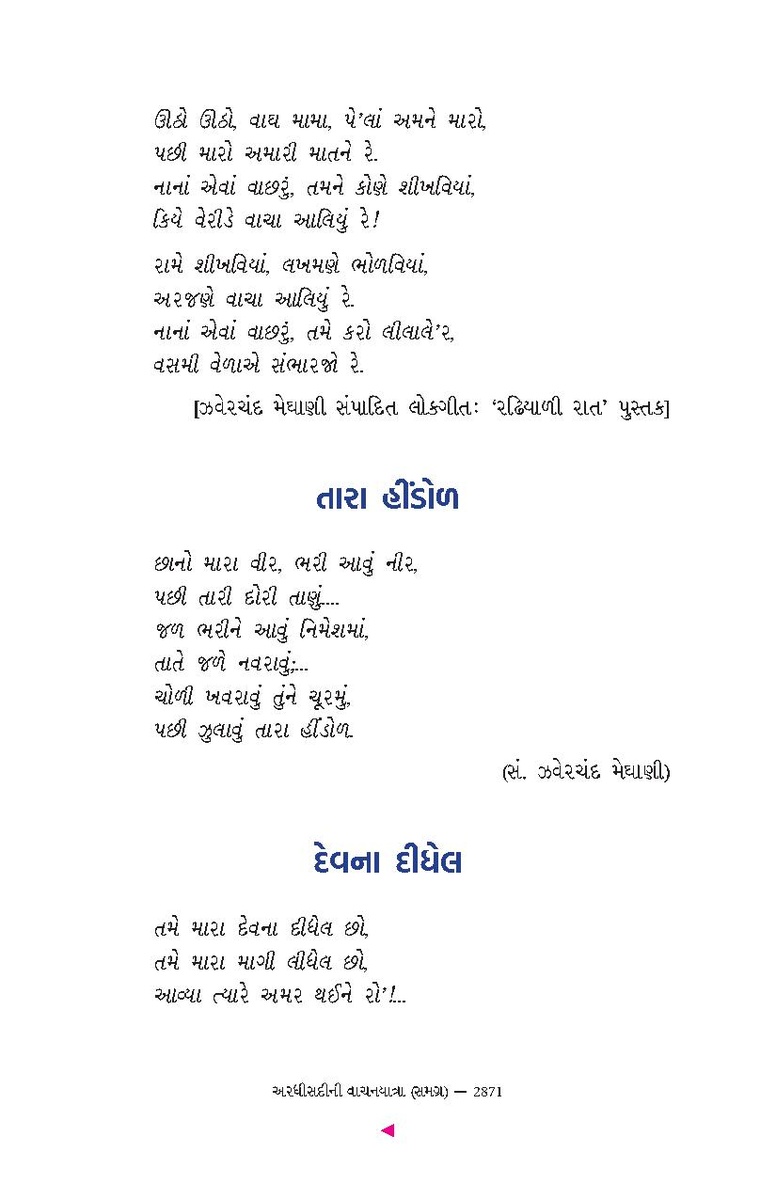 ઊઠો ઊઠો, વાઘ મામા, પે’લાં અમને મારો,
પછી મારો અમારી માતને રે.
નાનાં એવાં વાછરું, તમને કોણે શીખવિયાં,
કિયે વેરીડે વાચા આલિયું રે!
રામે શીખવિયાં, લખમણે ભોળવિયાં,
અરજણે વાચા આલિયું રે.
નાનાં એવાં વાછરું, તમે કરો લીલાલે’ર,
વસમી વેળાએ સંભારજો રે.
[ઝવેરચંદ મેઘાણી સંપાદિત લોકગીતઃ ‘રઢિયાળી રાત’ પુસ્તક]
તારા હીંડોળ
છાનો મારા વીર, ભરી આવું નીર,
પછી તારી દોરી તાણું....
જળ ભરીને આવું નિમેશમાં,
તાતે જળે નવરાવું;...
ચોળી ખવરાવું તુંને ચૂરમું,
પછી ઝુલાવું તારા હીંડોળ.
(સં. ઝવેરચંદ મેઘાણી)
દેવના દીધેલ
તમે મારા દેવના દીધેલ છો,
તમે મારા માગી લીધેલ છો,
આવ્યા ત્યારે અમર થઈને રો’!...
અરધીસદીની વાચનયાત્રા (સમગ્ર) — 2871